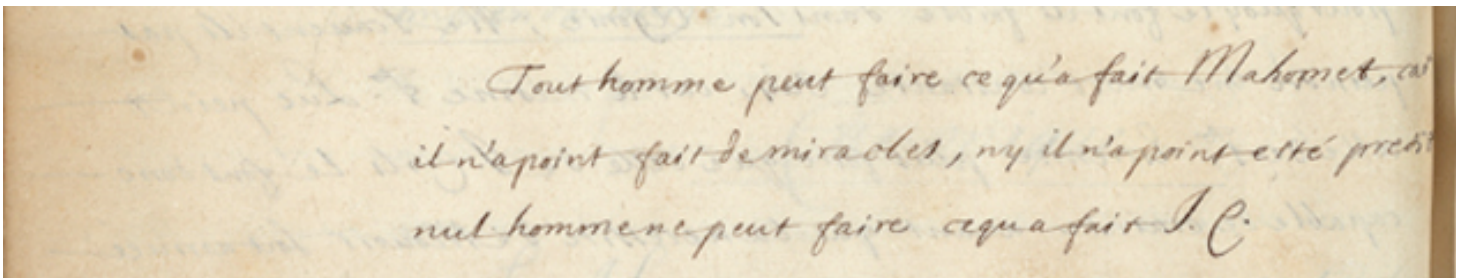 Tout homme peut faire ce qu'a fait Mahomet, car
il n'a point fait de miracles, ny il n'a point esté predit
nul homme ne peut faire ce qu a fait J. C.